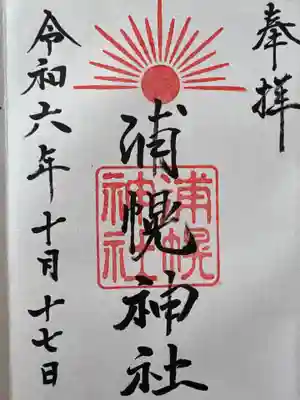 奉拝
浦幌神社
浦幌
神社
令和六年十月十七日